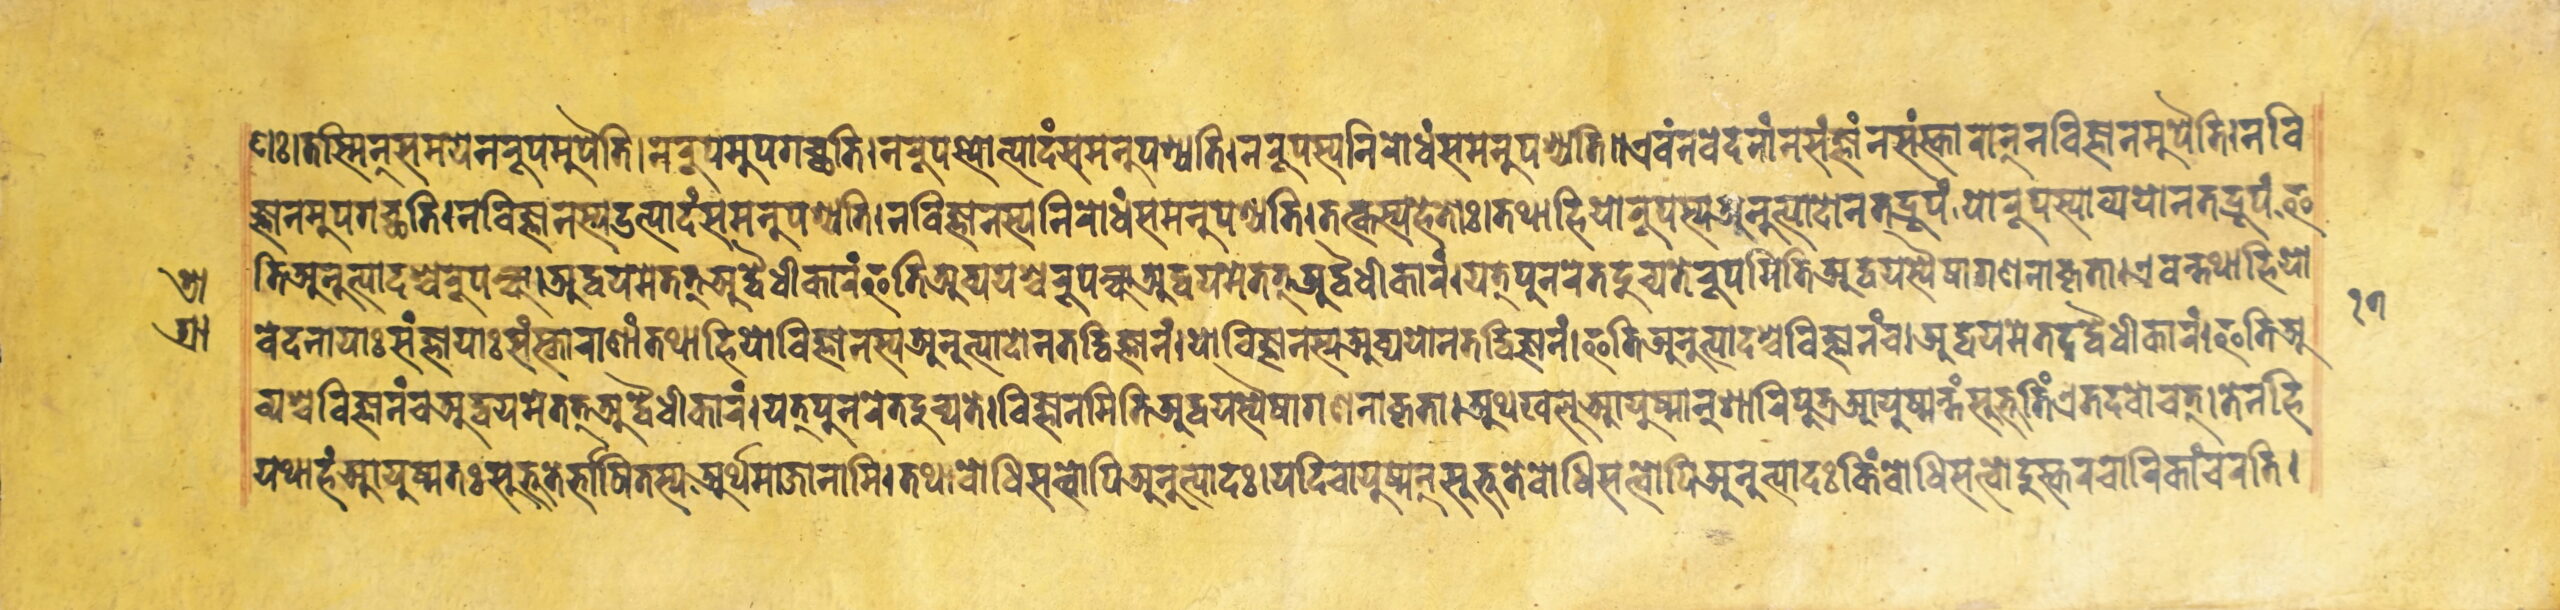 णः।तस्मिन्समयेनरूपमुपैति।नरूपमुपगच्छति।नरूपस्योत्पादंसमनुपश्यति।नरूपस्यनिरोधंसमनुपश्यति॥एवंनवेदनांनसंज्ञांनसंस्कारान्नविज्ञानमुपैति।नवि
ज्ञानमुपगच्छति।नविज्ञानस्यउत्पादंसमनुपश्यति।नविज्ञानस्यनिरोधंसमनुपश्यति।तत्कस्यहेतोः।तथाहियोरूपस्यअनुत्पादोनतत्द्रूपं।योरूपस्याव्ययोनतद्रूपं।इ
तिअनुत्पादश्चरूपञ्च।अद्वयमेतत्अद्वैधीकारंइतिअव्ययश्चरूपञ्चअद्वयमेतत्अद्वैधीकारं।यत्पुनरेतदुच्यतेरूपमितिअद्वयस्यैषागणनाकृता।एवन्तथाहियो
वेदनायाःसंज्ञायाःसंस्काराणांतथाहियोविज्ञानस्यअनुत्पादोनतद्विज्ञानं।योविज्ञानस्यअव्ययोनतद्विज्ञानं।इतिअनुत्पादश्चविज्ञानंच।अद्वयमेतदद्वैधीकारं।इतिअ
व्यश्चविज्ञानंचअद्वयमेतत्अद्वैधीकारं।यत्पुनरेतदुच्यते।विज्ञानमितिअद्वयस्यैषागणनाकृता।अथखलुआयुष्मान्शारिपुत्रआयुष्मन्तंसुभूतिंएतदवोचत्।तेनहि
यथाहंआयुष्मतःसुभूतेर्भाषितस्यअर्थमाजानामि।तथाबोधिसत्वोपिअनुत्पादः।यदिचायुष्मन्सुभूतेबोधिसत्वोपिअनुत्पादःकिंबोधिसत्वोदुस्करचारिकांचरति।